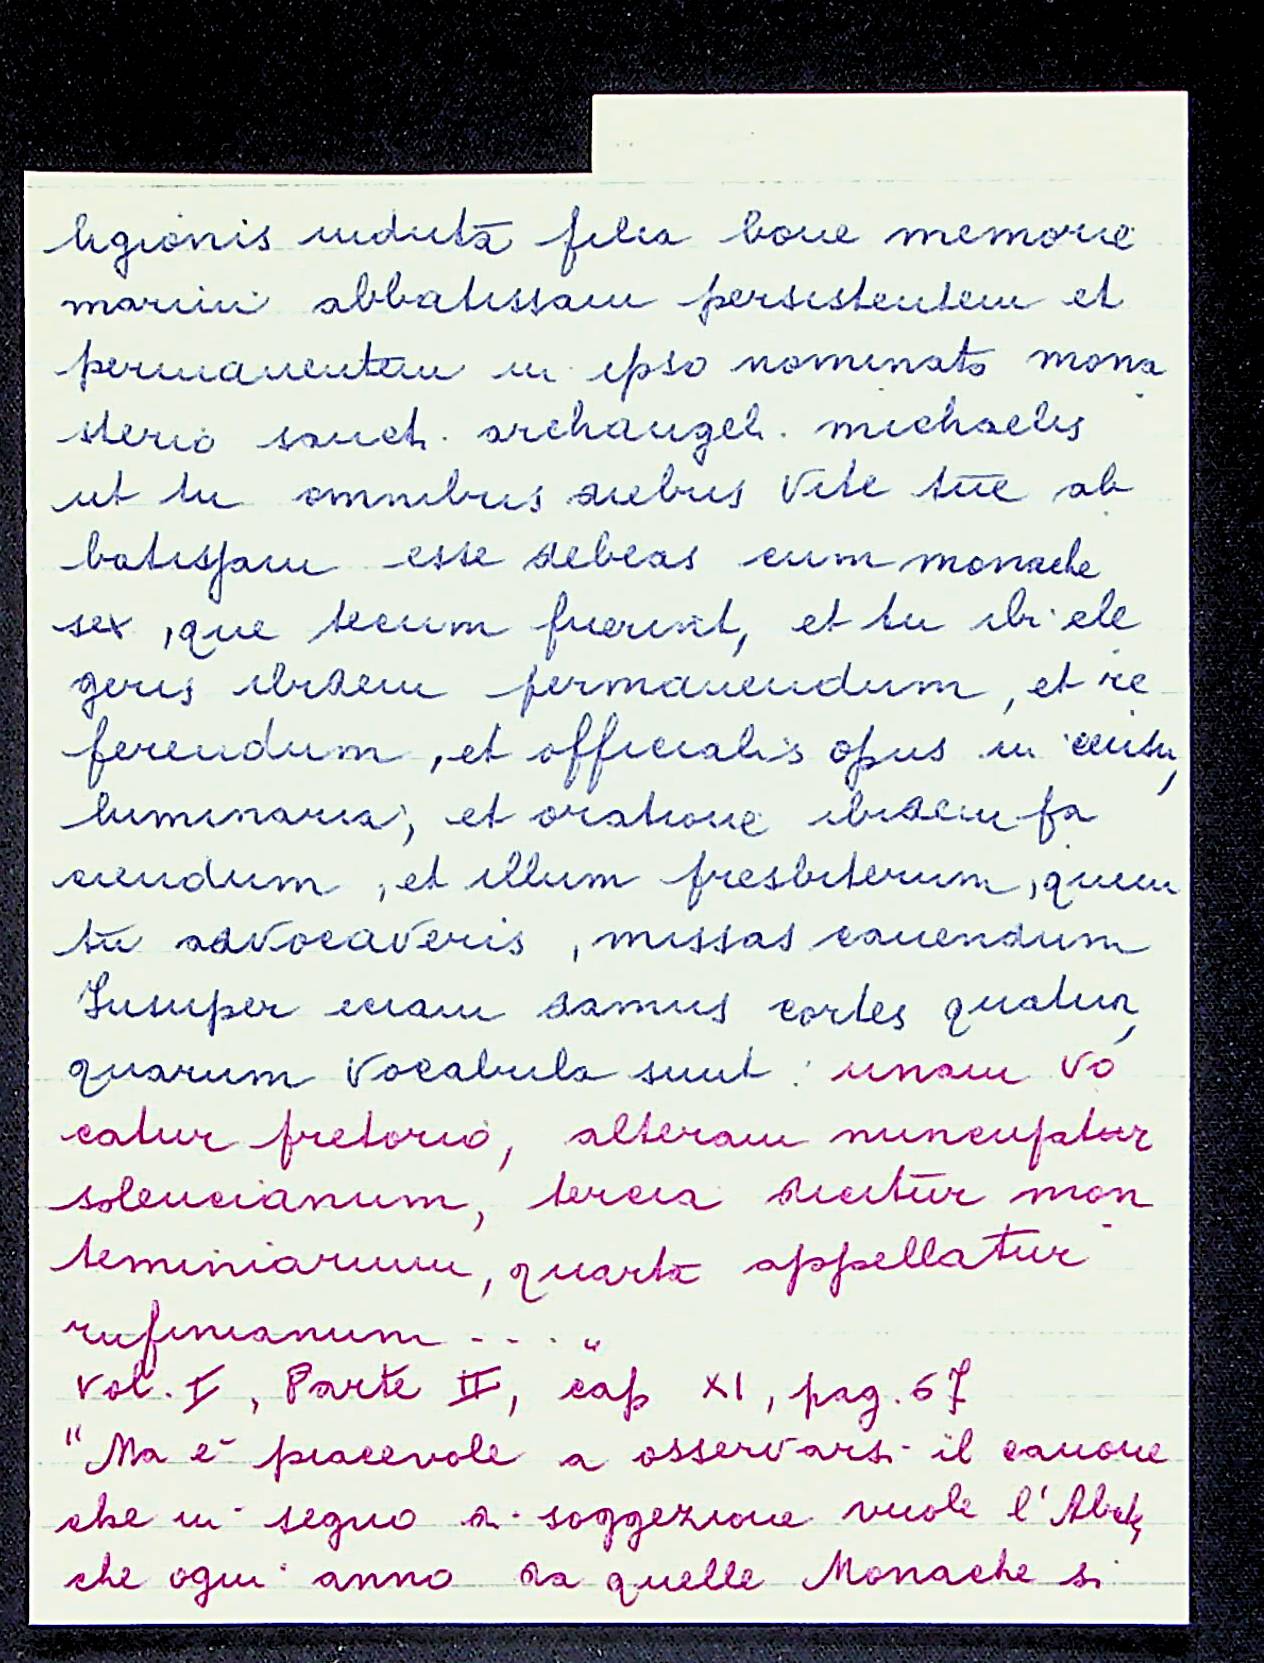 ligionis induta filia bone memorie
marini abbatissam persistentem et
permanentem in ipso nominato mona
sterio sancti archangeli michaelis
ut tu omnibus diebus vite tue ab
batissam esse debeas cum monache
sex, que tecum fuerint, et tu ibi ele
geris ibidem permanendum, et re
ferendum, et officialis opus in
luminaria, et oratione ibidem fa
ciendum, et illum presbiterum, quem
tu advocaveris, missas canendum
Insuper eciam damus cortes quatuor,
quarum vocabula sunt: unam vo
catur pretorio, alteram nuncuptur
solencianum, tercia dicitur mon
teminiarum, quarta appellatur
rufinianum ...."
Vol. I, Parte II, cap XI, pag. 67
"Ma è piacevole a osservarsi il canone
che in segno di soggezione vuole l'Abate,
che ogni anno da quelle Monache si